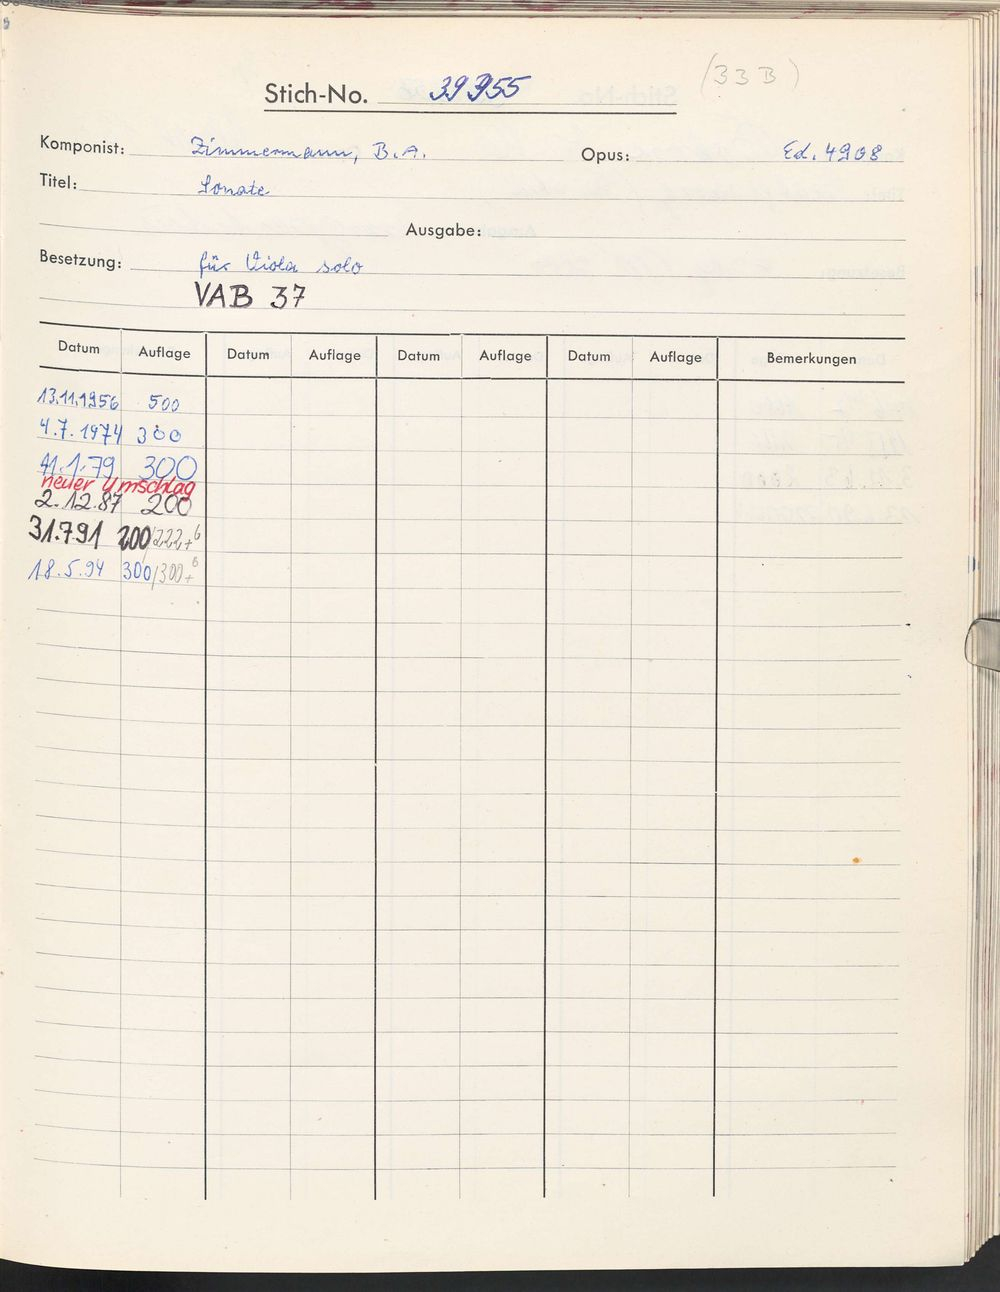 (33 B)
Stich-No. 39955
Komponist: Zimmermann, B.A. Opus: Ed. 4908
Titel: Sonate
Ausgabe:
Besetzung: für Viola solo
VAB 37
Datum Auflage Datum Auflage Datum Auflage Datum Auflage Bemerkungen
13.11.1956 500
4.7.1974 300
11.1.79 300
neuer Umschlag
2.12.87 200
31.7.91 200/222+6
18.5.94 300/300+6